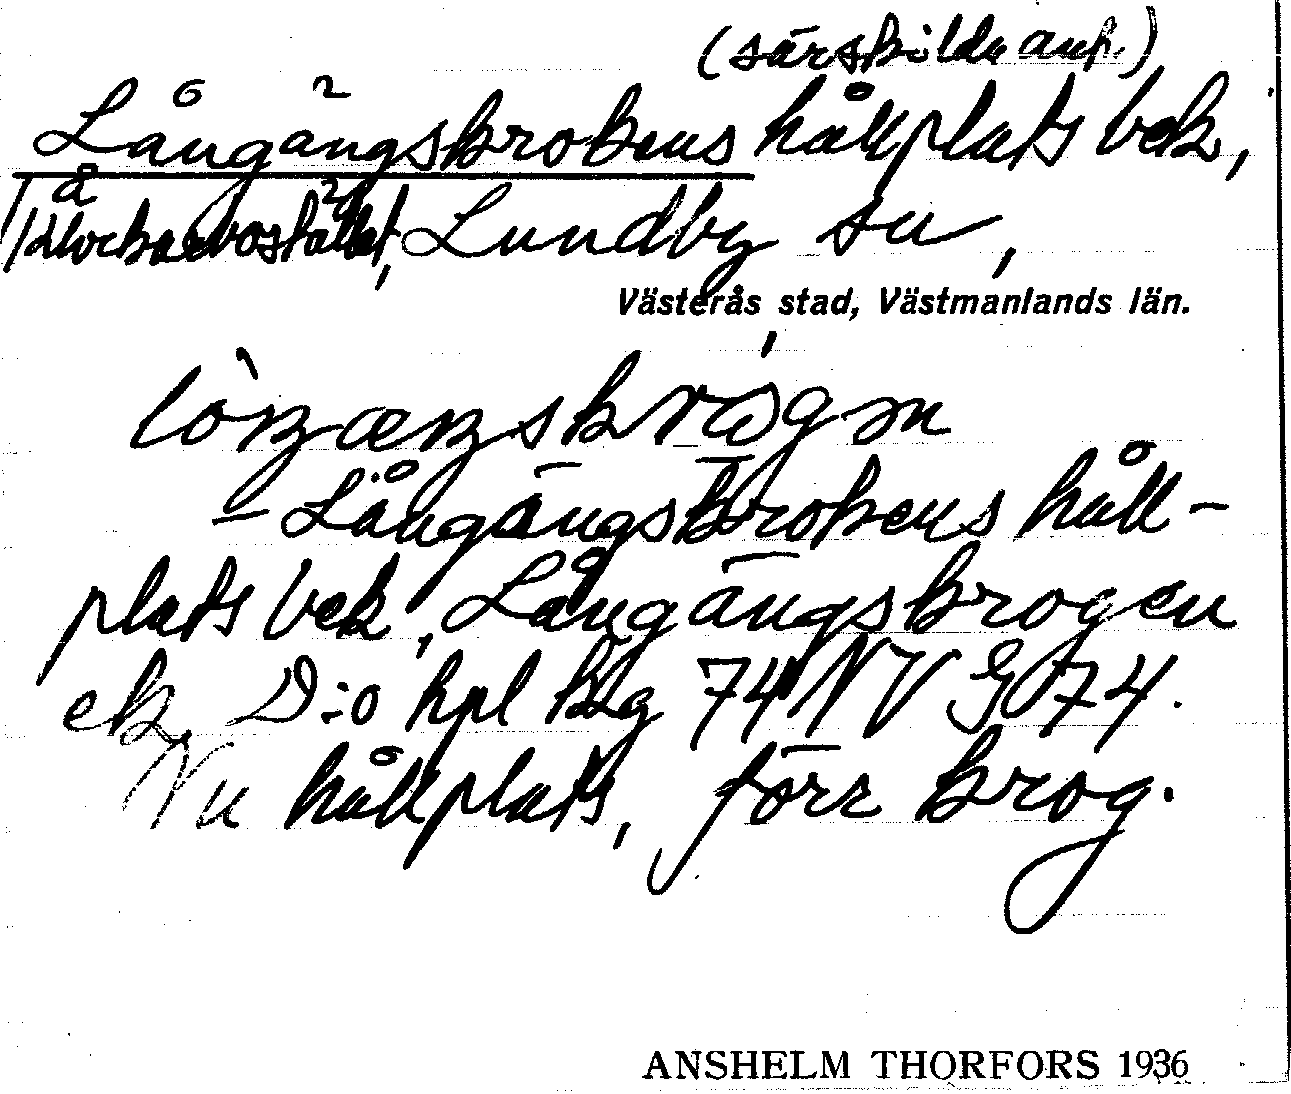 (särskilda anh.)
Långängskrokens hållplats bek,
å Klockarbostället, Lundby sn,
Västerås stad, Västmanlands län.
lòŋæŋskrógən
– Långängskrokens håll-
plats bek, Långängsbrogen
ek. D:o hpl bkg 74 NV GO 74.
Nu hållplats, förr krog.
ANSHELM THORFORS 1936